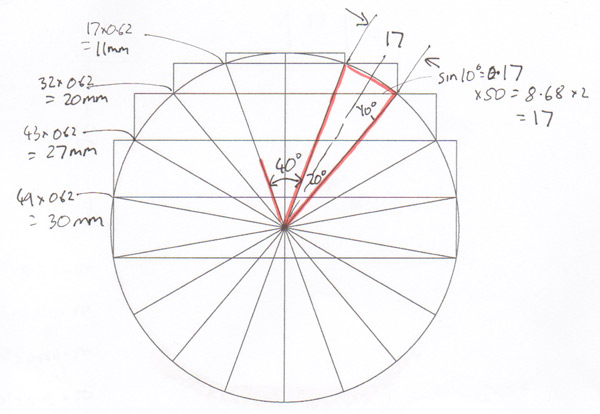 17x0.62
= 11mm
32x0.62
= 20mm
43x0.62
= 27mm
49x0.62
= 30mm
17
sin10°=0.17
x50 = 8.68 x 2
= 17
40°
20°